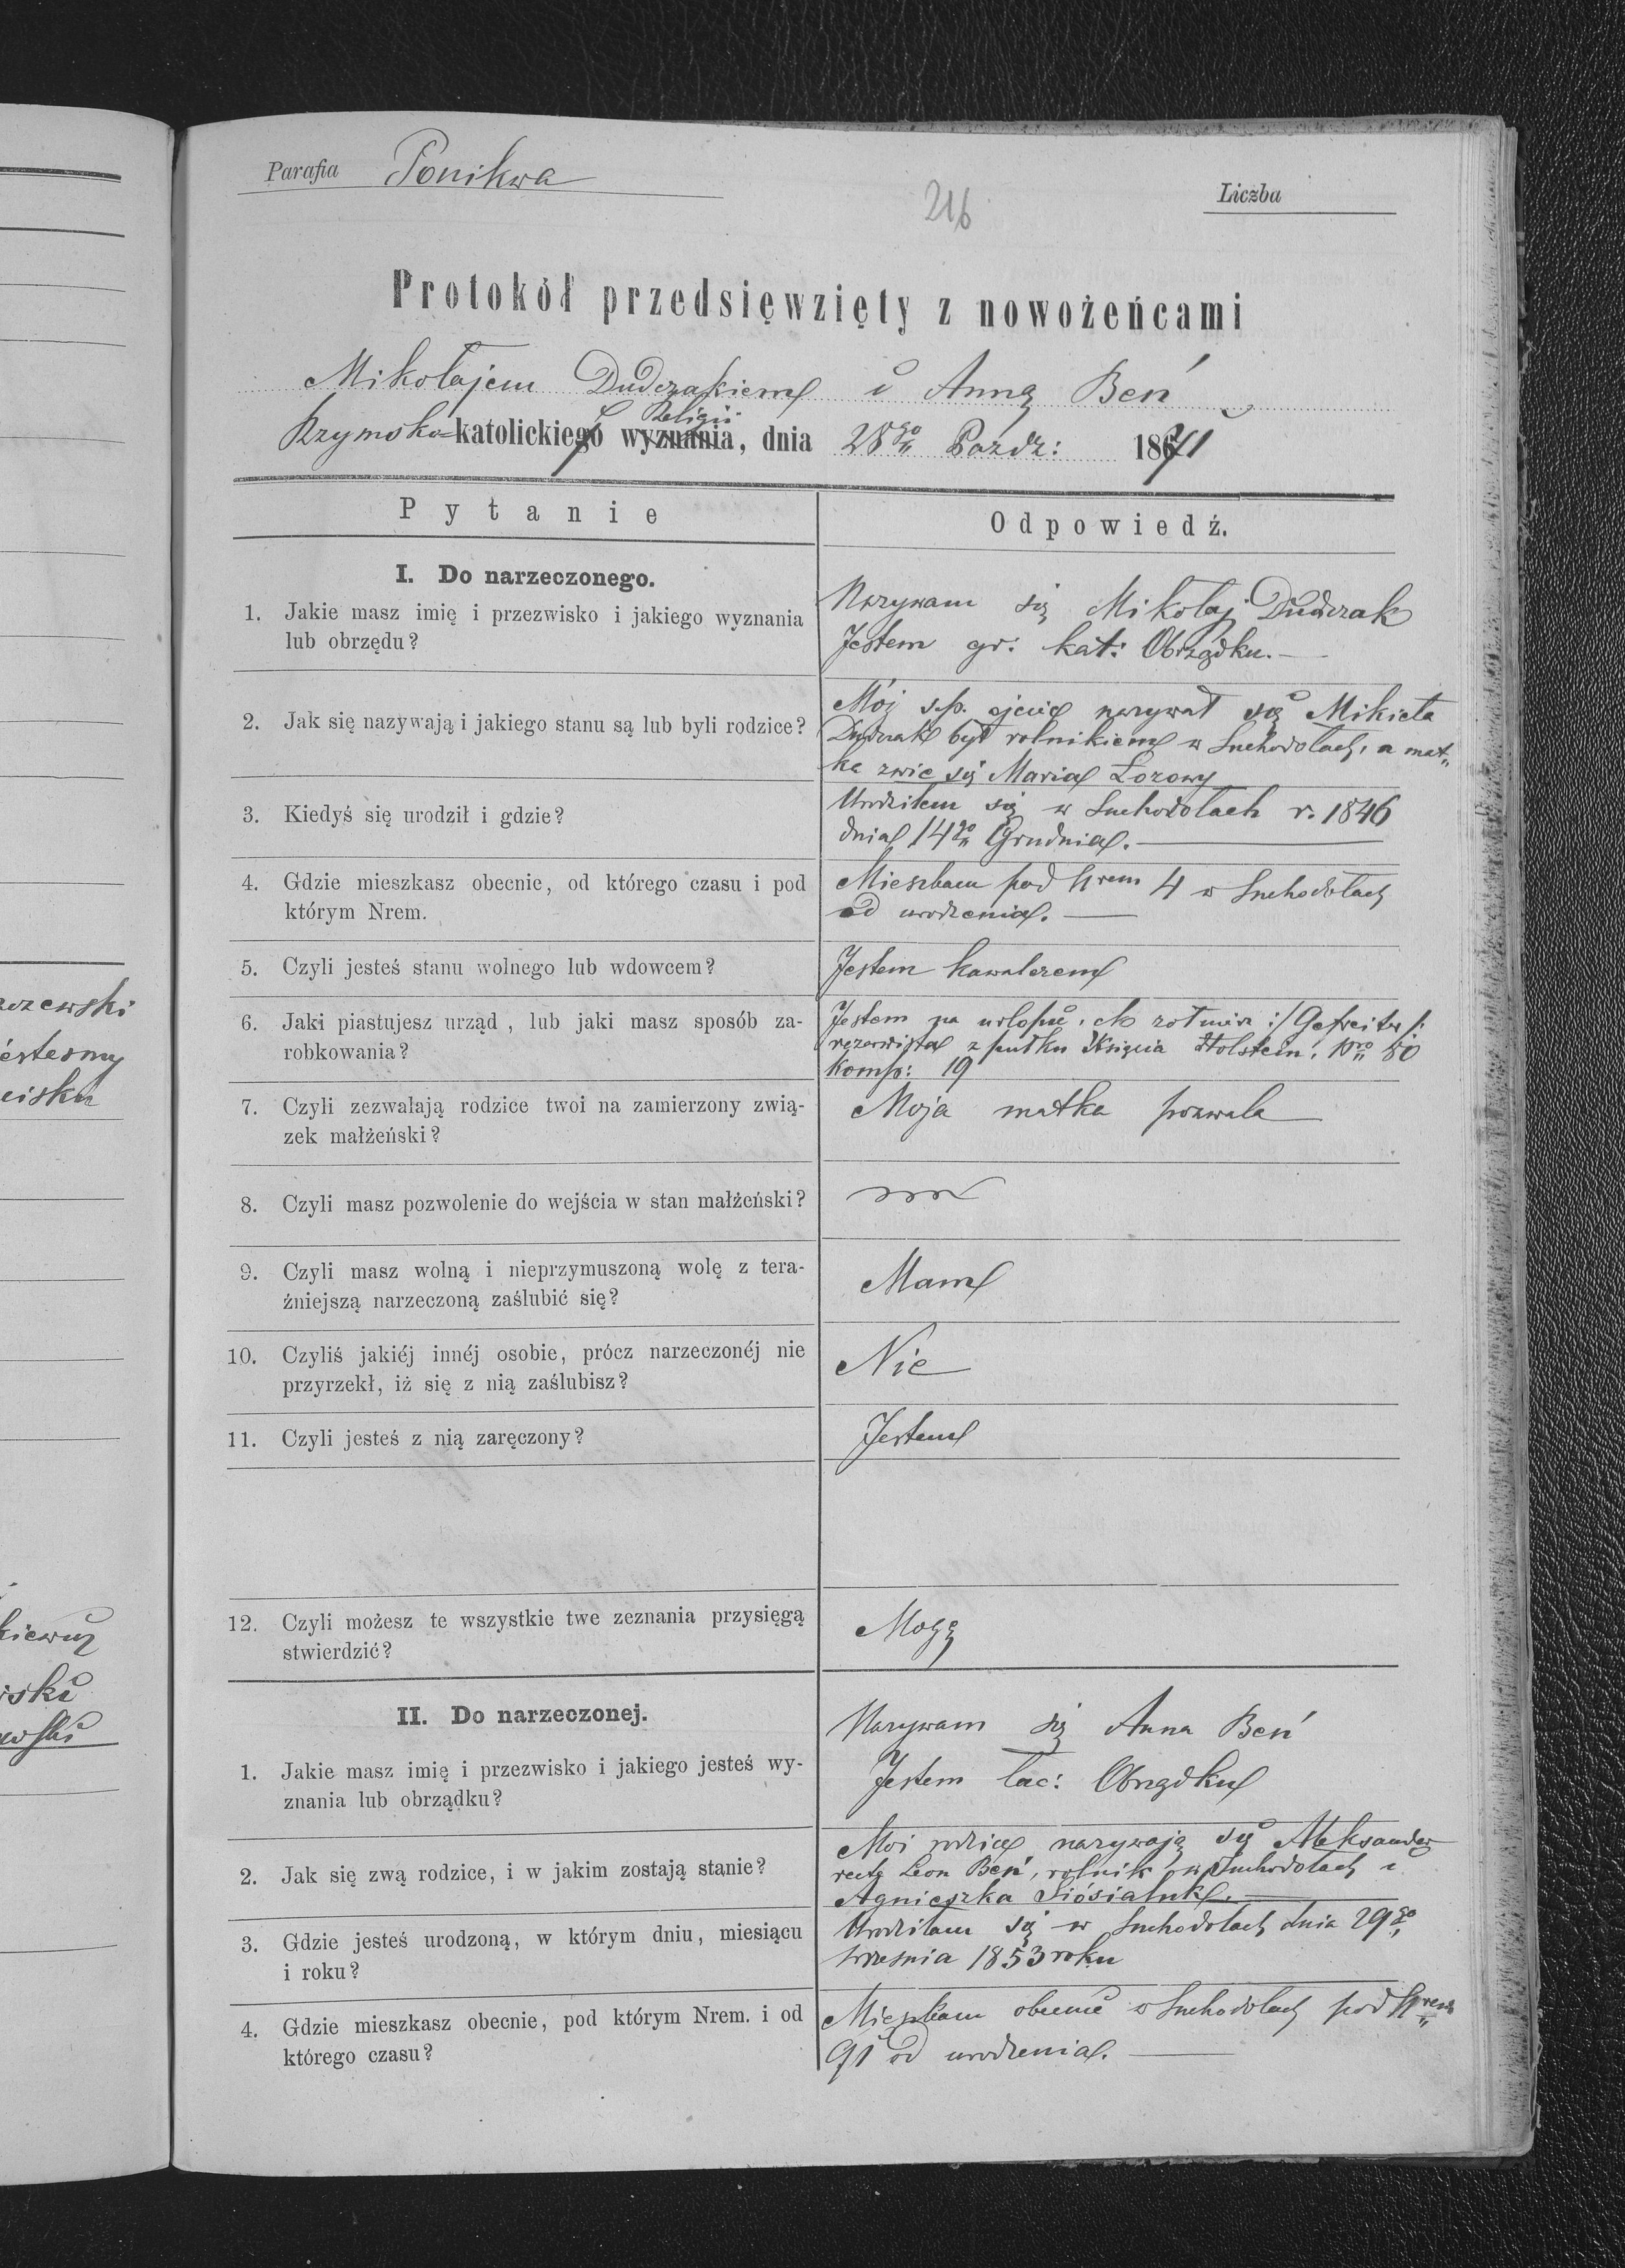 Parafia Ponikwa
216
Liczba
Protokół przedsięwzięty z nowożeńcami
Mikołajem Dudczakiem i Anną Beń
Religii
Rzymsko-katolickiego wyznania, dnia 28go Pazdz: 1871
Pytanie
Odpowiedź.
I. Do narzeczonego.
1. Jakie masz imię i przezwisko i jakiego wyznania
lub obrzędu?
Nazywam się Mikołaj Dudczak
Jestem gr: kat: Obrządku.—
2. Jak się nazywają i jakiego stanu są lub byli rodzice?
Mój s.p. ojciec nazywał się Mikieta
Dudczak był rolnikiem w Suchodołach, a mat„
ka zwie się Maria Łozowy
3. Kiedyś się urodził i gdzie?
Urodziłem się w Suchodołach r. 1846
dnia 14go Grudnia.—
4. Gdzie mieszkasz obecnie, od którego czasu i pod
którym Nrem.
Mieszkam pod Nrem 4 w Suchodołach
od urodzenia.—
5. Czyli jesteś stanu wolnego lub wdowcem?
Jestem kawalerem
6. Jaki piastujesz urząd, lub jaki masz sposób za-
robkowania?
Jestem na urlopie, /: Gefreiter :/
rezerwista z pułku Księcia Holstein, Nro 80
Komp: 19
7. Czyli zezwalają rodzice twoi na zamierzony zwią-
zek małżeński?
Moja matka pozwala
8. Czyli masz pozwolenie do wejścia w stan małżeński?
9. Czyli masz wolną i nieprzymuszoną wolę z tera-
źniejszą narzeczoną zaślubić się?
Mam
10. Czyliś jakiéj innéj osobie, prócz narzeczonéj nie
przyrzekł, iż się z nią zaślubisz?
Nie
11. Czyli jesteś z nią zaręczony?
Jestem
12. Czyli możesz te wszystkie twe zeznania przysięgą
stwierdzić?
Mogę
II. Do narzeczonej.
1. Jakie masz imię i przezwisko i jakiego jesteś wy-
znania lub obrządku?
Nazywam się Anna Beń
Jestem łac: Obrządku
2. Jak się zwą rodzice, i w jakim zostają stanie?
Moi rodzice nazywają się Aleksander
recte Leon Beń, rolnik w Suchodołach i
Agnieszka
3. Gdzie jesteś urodzoną, w którym dniu, miesiącu
i roku?
Urodziłam się w Suchodołach dnia 29go
września 1853 roku
4. Gdzie mieszkasz obecnie, pod którym Nrem. i od
którego czasu?
Mieszkam obecnie w Suchodołach pod Nrem
91 od urodzenia.—